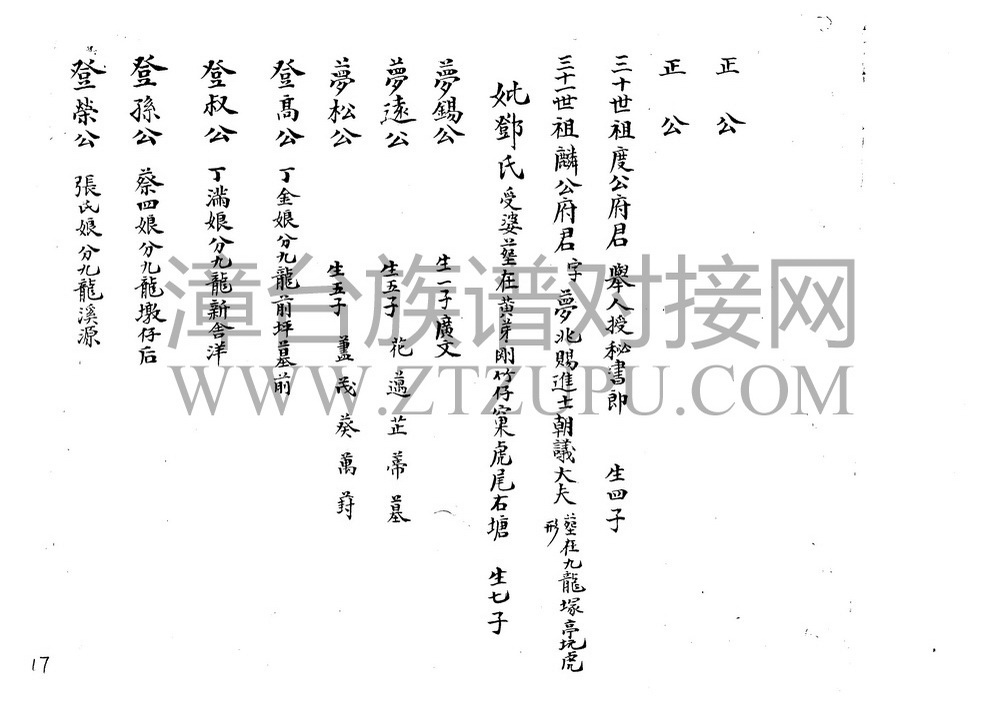 正公
正公
三十世祖度公府君 舉人授秘書郎 生四子
三十一世祖麟公府君 字夢兆賜進士朝議大夫 塟在九龍塚亭坑虎形
妣鄧氏受婆塟在黃芽剛竹仔窠虎尾右塘 生七子
夢錫公 生一子廣文
夢遠公 生五子 花 邁 芷 蒂 墓
夢松公 生五子 藎 茂 葵 萬 葑
登高公 丁金娘分九龍前坪墓前
登叔公 丁滿娘分九龍新舍洋
登孫公 蔡四娘分九龍墩仔后
登榮公 張氏娘分九龍溪源
漳台族谱对接网
WWW.ZTZUPU.COM
17